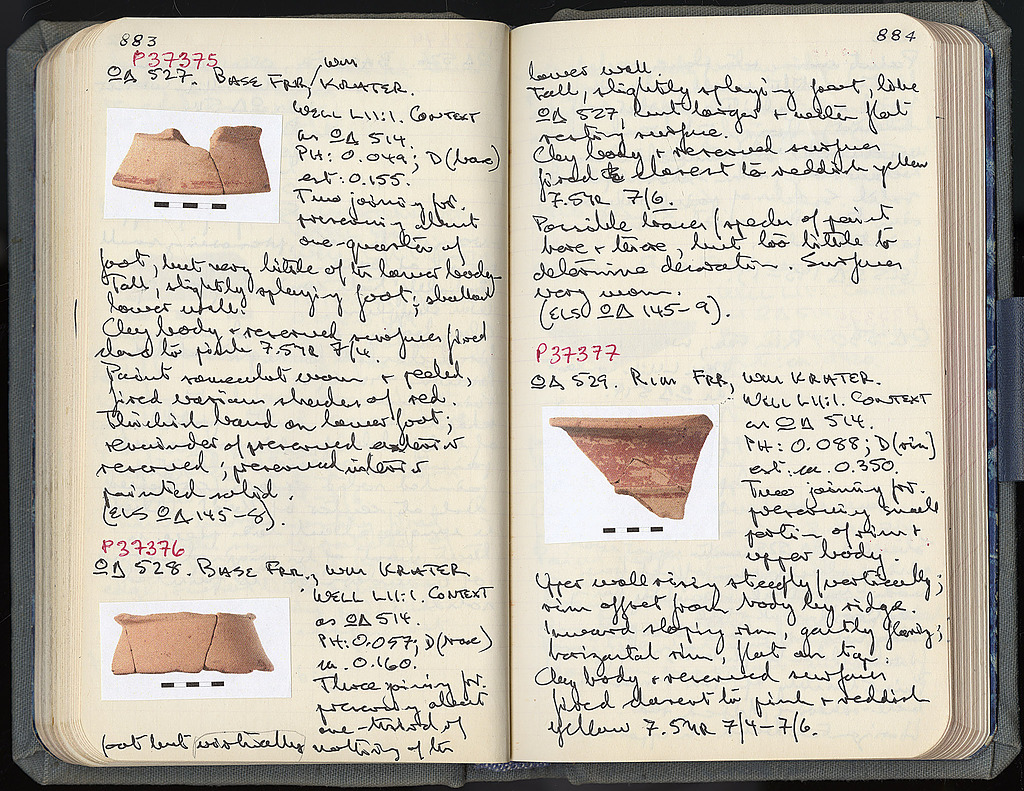 883
P37375
ΟΔ 527. BASE FRR, WM KRATER.
WELL L11:1. CONTEXT
as ΟΔ 514.
PH: 0.049; D (base)
est: 0.155.
Two joining fr.
preserving about
one-quarter of
foot, but very little of the lower body.
Tall, slightly splaying foot; shallow
lower wall.
Clay body + reserved surfaces fired
close to pink 7.5YR 7/4.
Paint somewhat worn + peeled,
fired various shades of red.
Thickish band on lower foot;
remainder of preserved exterior
reserved; preserved interior
painted solid.
(ELS ΟΔ 145-8).
P37376
ΟΔ 528. BASE FRR., WM KRATER
WELL L11:1. CONTEXT
as ΟΔ 514.
PH: 0.057; D (base)
ca. 0.160.
Three joining fr.
preserving about
one-third of
foot but virtually nothing of the
884
lower wall.
Tall, slightly splaying foot, like
ΟΔ 527, but larger + wider flat
resting surface.
Clay body + reserved surfaces
fired closest to reddish yellow
7.5YR 7/6.
Possible traces/specks of paint
here + there, but too little to
determine decoration. Surfaces
very worn.
(ELS ΟΔ 145-9).
P37377
ΟΔ 529. RIM FRR, WM KRATER.
WELL L11:1. CONTEXT
as ΟΔ 514.
PH: 0.088; D (rim)
est: ca. 0.350.
Two joining fr.
preserving small
portion of rim +
upper body.
Upper wall rising steeply/vertically;
rim offset from body by ridge.
Inward sloping rim, gently flaring;
horizontal rim, flat on top.
Clay body + reserved surfaces
fired closest to pink + reddish
yellow 7.5YR 7/4-7/6.